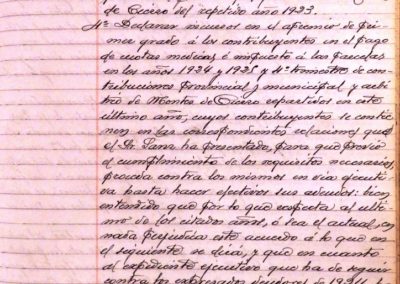 de Cicero del repetido año 1933.
4º Declarar incursos en el apremio de pri-
mer grado á los contribuyentes en el pago
de cuotas medicas, é impuesto á las parcelas
en los años 1934 y 1935 y 4º trimestre de con-
tribuciones provincial y municipal y arbi-
trio de Montes de Cicero repartidos en este
último año, cuyos contribuyentes se contie-
nen en las correspondientes relaciones que
el Sr. Sanz ha presentado, para que previo
el cumplimiento de los requisitos necesarios,
proceda contra los mismos en via ejecuti-
va hasta hacer efectivos sus adeudos: bien
entendido que por lo que respecta al últi-
mo de los citados años, ó sea el actual, en
nada perjudica este acuerdo á lo que en
el siguiente se dirá, y que en cuanto
al expediente ejecutivo que ha de seguir
contra los expresados deudores de 1934